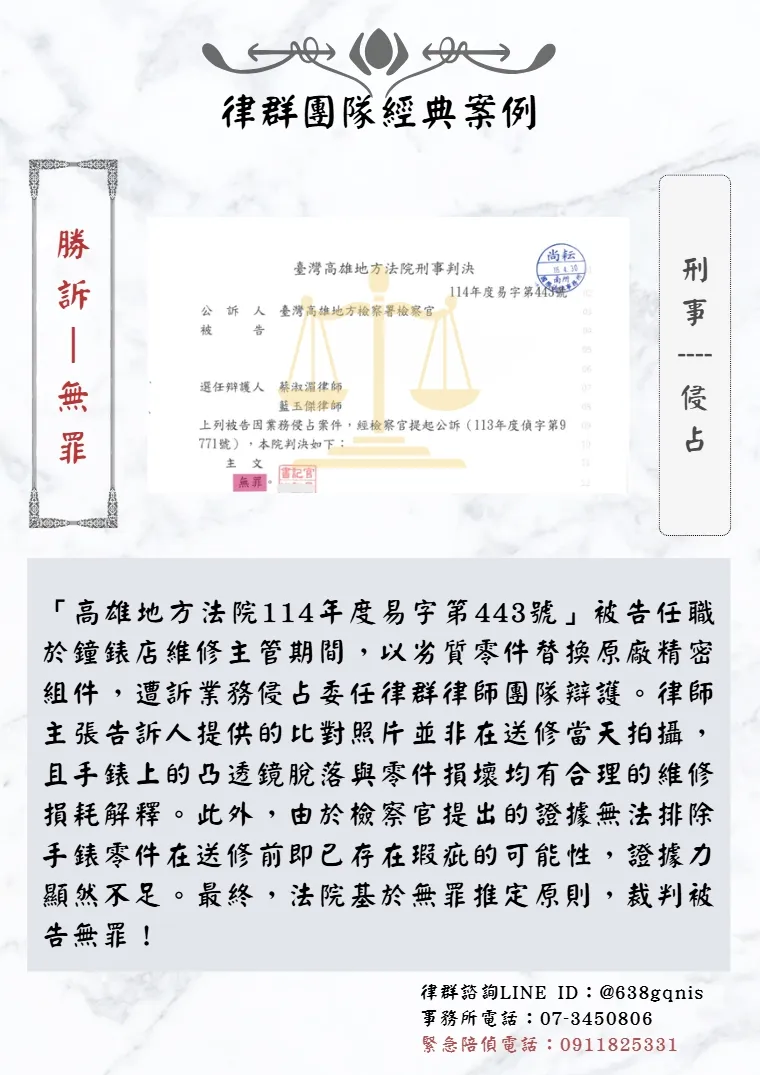 律群團隊經典案例
勝訴—無罪
刑事----侵占
臺灣高雄地方法院刑事判決
尚耘
114年度易字第443號
公訴人 臺灣高雄地方檢察署檢察官
被告
選任辯護人 蔡淑湄律師
藍玉傑律師
上列被告因業務侵占案件,經檢察官提起公訴(113年度偵字第9
771號),本院判決如下:
主文
無罪。
書記官
「高雄地方法院114年度易字第443號」被告任職
於鐘錶店維修主管期間,以劣質零件替換原廠精密
組件,遭訴業務侵占委任律群律師團隊辯護。律師
主張告訴人提供的比對照片並非在送修當天拍攝,
且手錶上的凸透鏡脫落與零件損壞均有合理的維修
損耗解釋。此外,由於檢察官提出的證據無法排除
手錶零件在送修前即已存在瑕疵的可能性,證據力
顯然不足。最終,法院基於無罪推定原則,裁判被
告無罪!
律群諮詢LINE ID:@638gqnis
事務所電話:07-3450806
緊急陪偵電話:0911825331